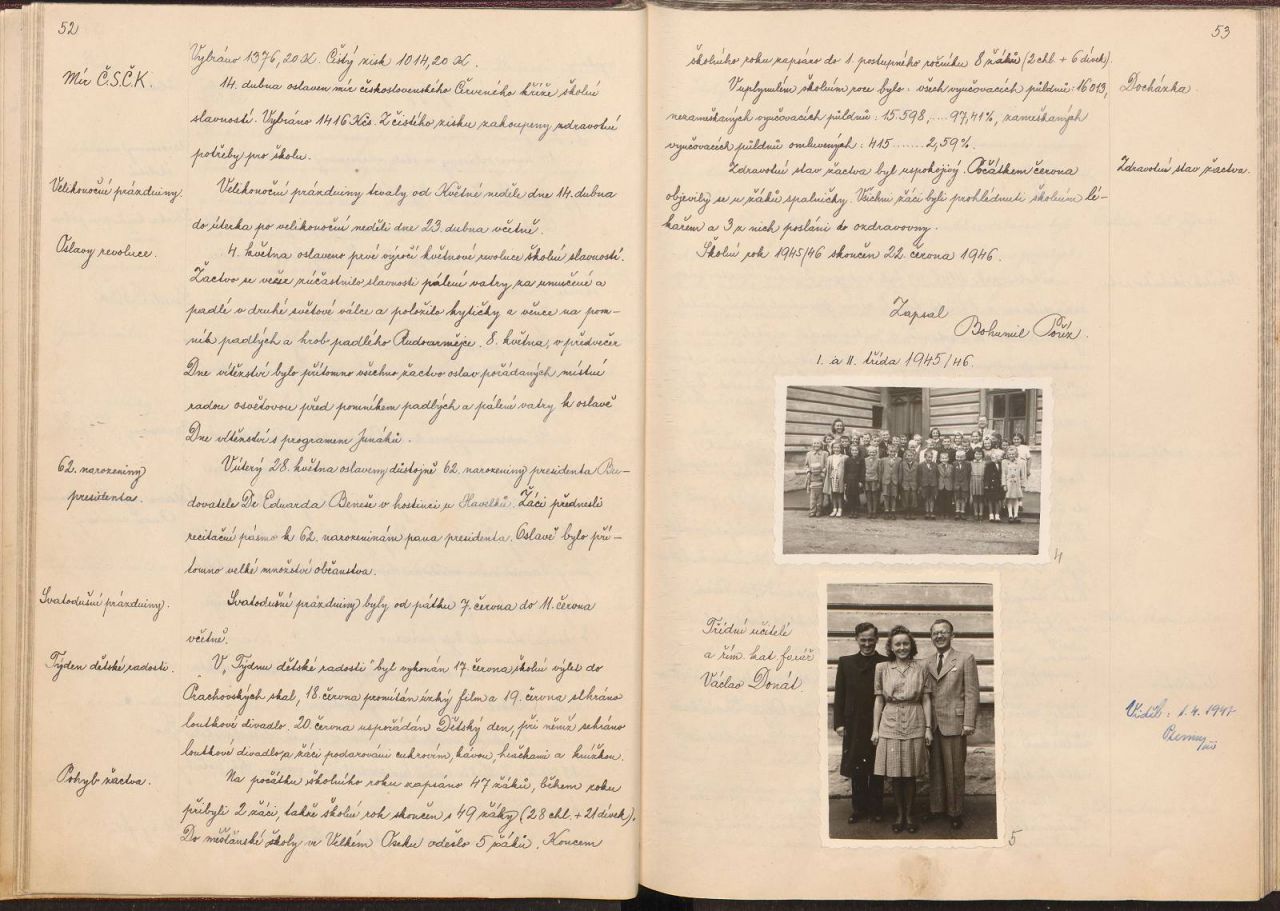 52
Vybráno 1376,20 K. Čistý zisk 1014,20 K.
Mír Č.S.Č.K.
14. dubna oslaven mír československého Červeného kříže školní
slavností. Vybráno 1416 Kčs. Z čistého zisku zakoupeny zdravotní
potřeby pro školu.
Velikonoční prázdniny
Velikonoční prázdniny trvaly od Květné neděle dne 14. dubna
do úterka po velikonoční neděli dne 23. dubna včetně.
Oslavy revoluce.
4. května oslaveno prvé výročí květnové revoluce školní slavností.
Žactvo se večer zúčastnilo slavnosti pálení vatry za umučené a
padlé v druhé světové válce a položilo kytičky a věnce na pom-
ník padlých a hrob padlého Rudoarmějce. 8. května, v předvečer
Dne vítězství bylo přítomno všechno žactvo oslav pořádaných místní
radou osvětovou před pomníkem padlých a pálení vatry k oslavě
Dne vítězství s programem Junáků.
62. narozeniny
presidenta.
V úterý 28. května oslaveny důstojně 62. narozeniny presidenta Bu-
dovatele Dr Eduarda Beneše v hostinci u Havelků. Žáci přednesli
recitační pásmo k 62. narozeninám pana presidenta. Oslavě bylo pří-
tomno velké množství občanstva.
Svatodušní prázdniny.
Svatodušní prázdniny byly od pátku 7. června do 11. června
včetně.
Týden dětské radosti.
V „Týdnu dětské radosti" byl vykonán 17. června školní výlet do
Prachovských skal, 18. června promítán úzký film a 19. června sehráno
loutkové divadlo. 20. června uspořádán Dětský den, při němž sehráno
loutkové divadlo a žáci podarováni cukrovím, kávou, hračkami a knížkou.
Pohyb žactva.
Na počátku školního roku zapsáno 47 žáků, během roku
přibyli 2 žáci, takže školní rok skončen s 49 žáky (28 chl. + 21 dívek).
Do měšťanské školy ve Velkém Oseku odešlo 5 žáků. Koncem
53
školního roku zapsáno do 1. postupného ročníku 8 žáků (2 chl + 6 dívek).
Docházka.
V uplynulém školním roce bylo: všech vyučovacích půldnů: 16013,
nezameškaných vyučovacích půldnů: 15.598,....97,41%, zameškaných
vyučovacích půldnů omluvených: 415 ........ 2,59%.
Zdravotní stav žactva.
Zdravotní stav žactva byl uspokojivý. Počátkem června
objevily se u žáků spalničky. Všichni žáci byli prohlédnuti školním lé-
kařem a 3 z nich posláni do ozdravovny.
Školní rok 1945/46 skončen 22. června 1946.
Zapsal
Bohumil Pošíz.
I. a II. třída 1945/46.
4
Třídní učitelé
a řím. kat. farář
Václav Donát.
5
Viděl: 1.4.1947